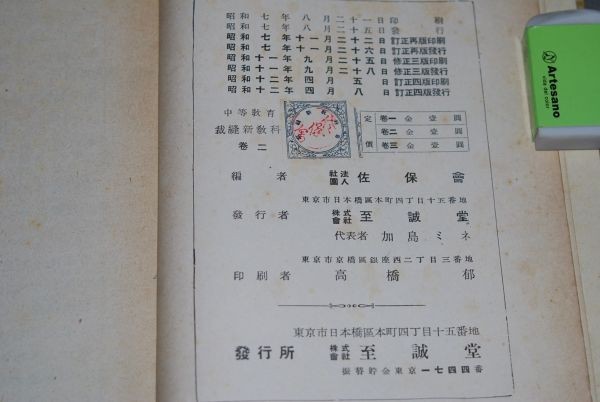 昭和七年八月二十一日印刷
昭和七年八月二十五日發行
昭和七年十一月二十二日訂正再版印刷
昭和七年十一月二十六日訂正再版發行
昭和十一年九月二十五日修正三版印刷
昭和十一年九月二十八日修正三版發行
昭和十二年四月五日訂正四版印刷
昭和十二年四月八日訂正四版發行
中等教育
裁縫新教科
卷二
定價
卷一 金壹圓
卷二 金壹圓
卷三 金壹圓
編者 社團法人 佐保會
東京市日本橋區本町四丁目十五番地
發行者 株式會社 至誠堂
代表者 加島ミネ
東京市京橋區銀座西二丁目三番地
印刷者 高橋郁
東京市日本橋區本町四丁目十五番地
發行所 株式會社 至誠堂
振替貯金東京一七四四番
Artesano